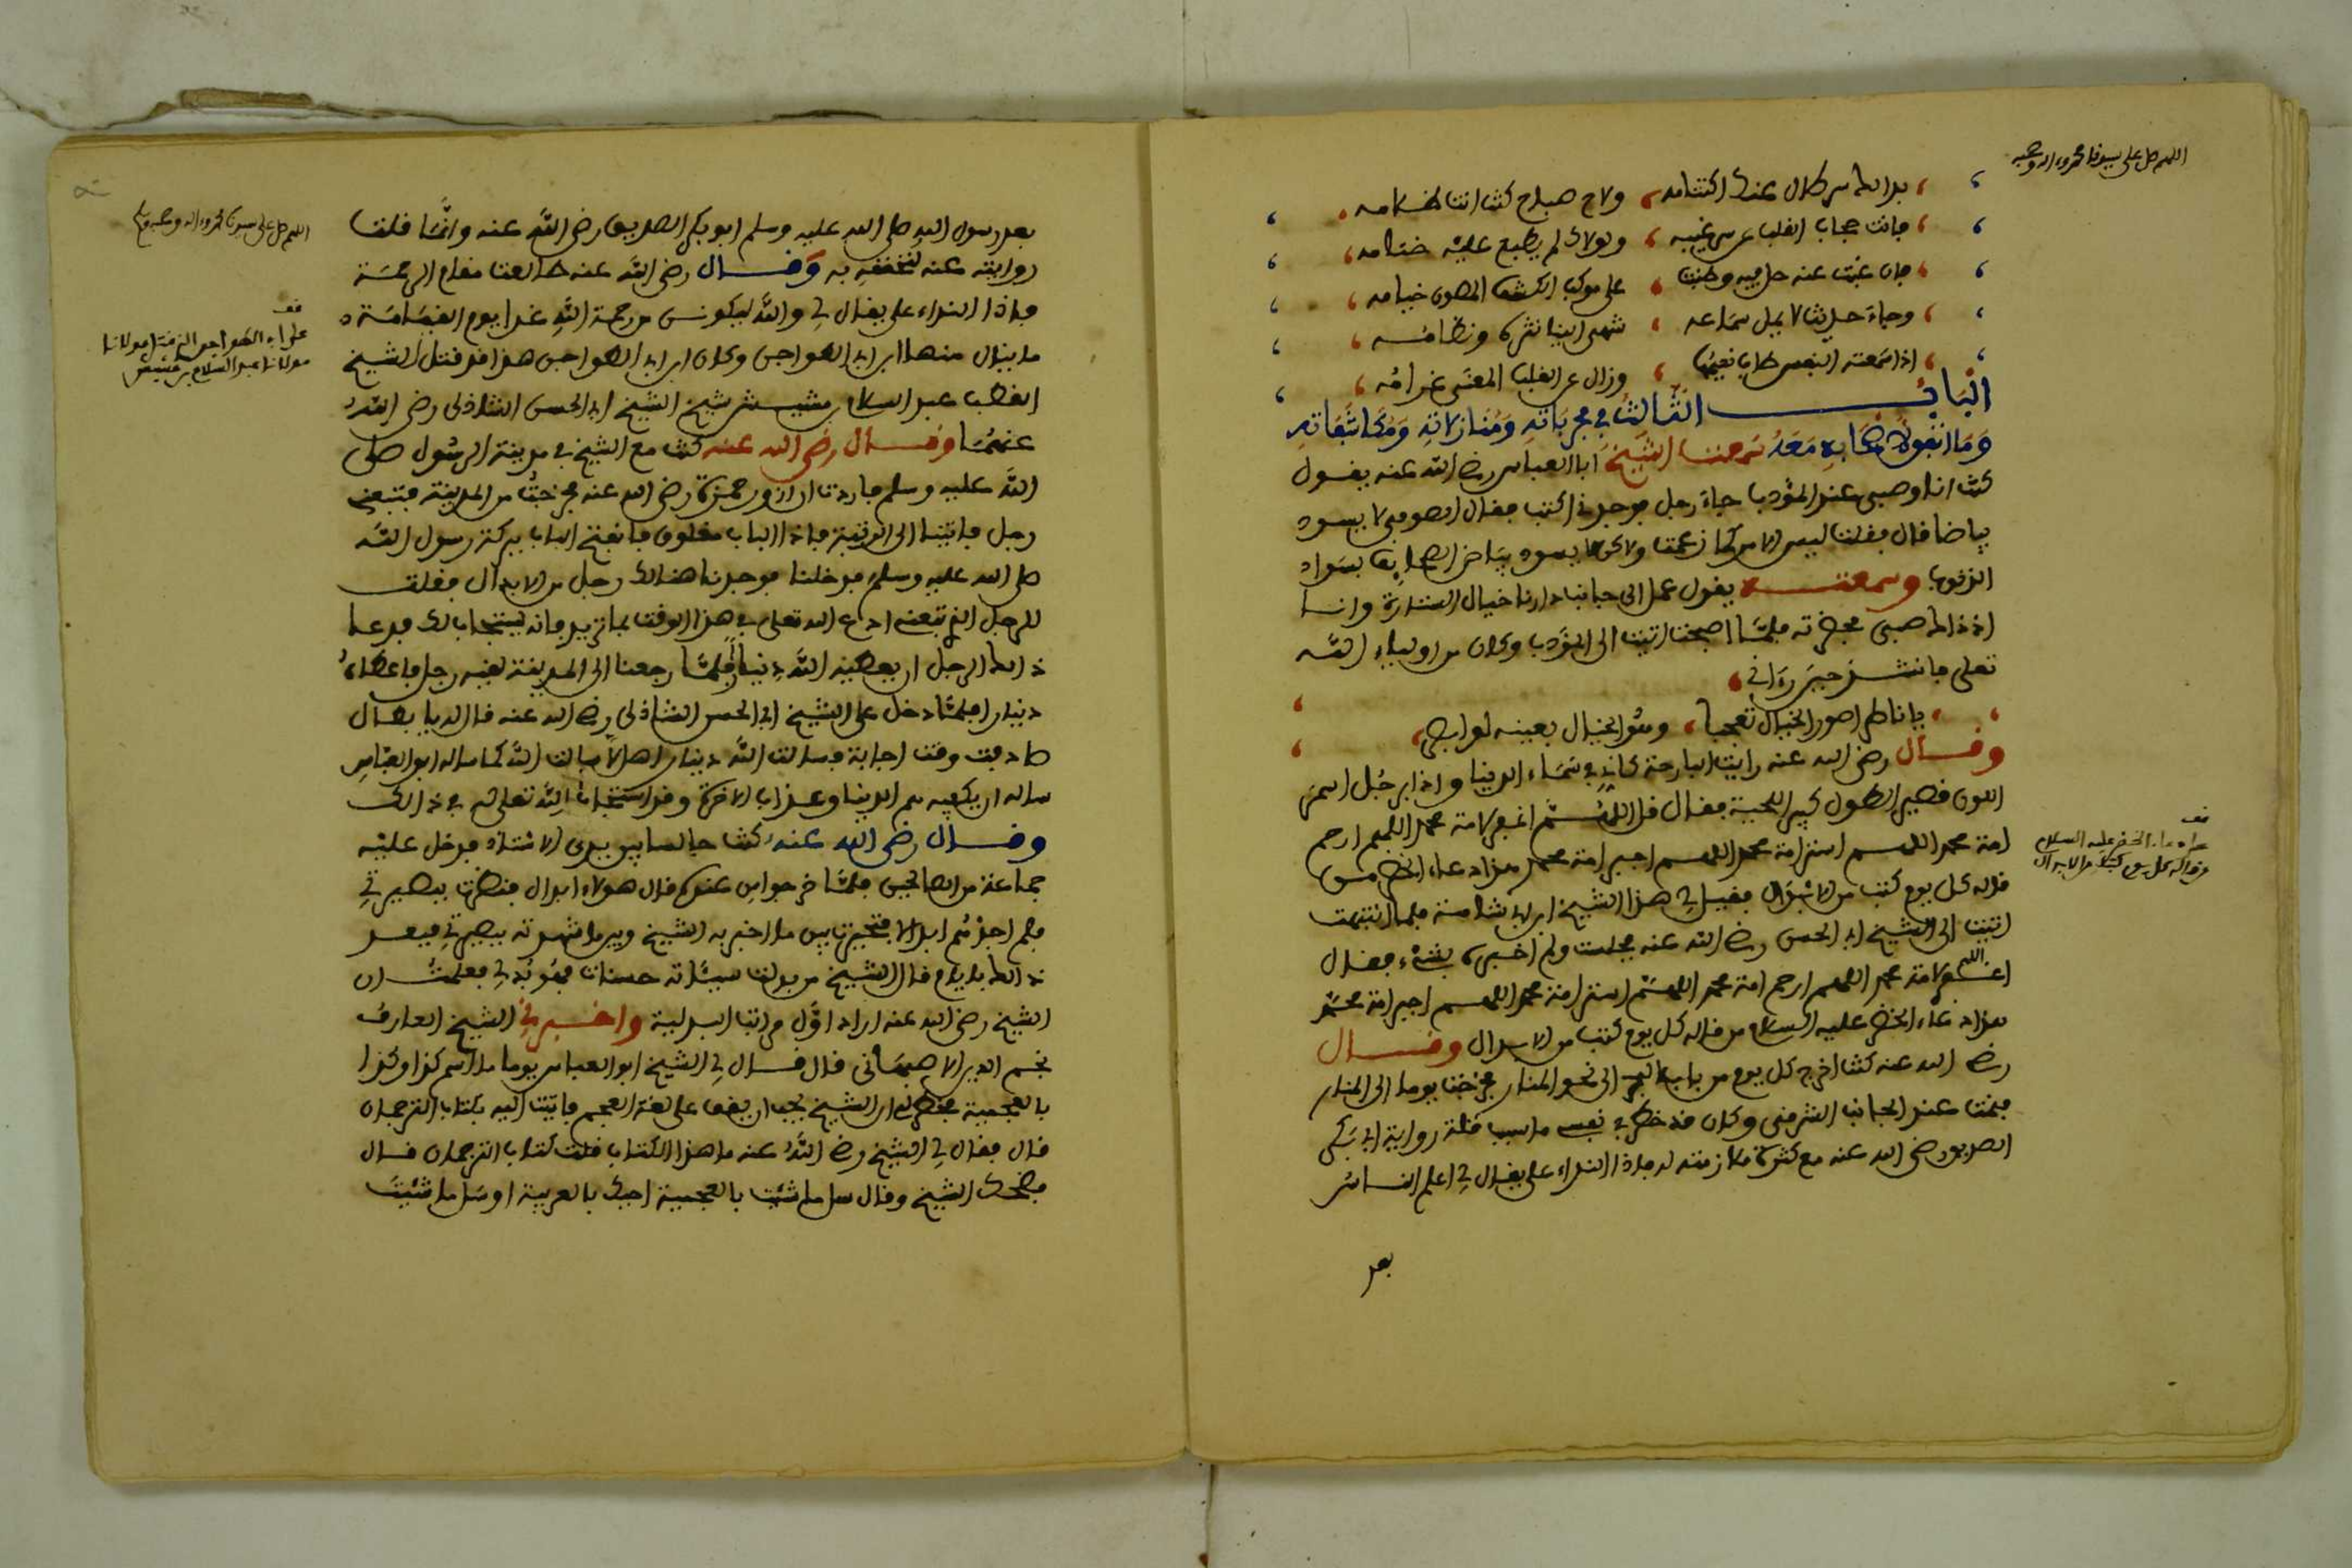 اللهم صل على سيدنا محمد وءاله وصحبه
بدا لك سر طال عنك اكتتامه ولاح صباح كنت انت ظلامه
فانت حجاب القلب عن سر غيبه ولولاك لم يطبع عليه ختامه
فان غبت عنه حل فيه وطنبت على موكب الكشف المصون خيامه
وجاء حديث لا يمل سماعه شهي الينا نثره ونظامه
اذا سمعته النفس طاب نعيمها وزال عن القلب المعنى غرامه
الباب الثالث في مجرباته ومنازلاته ومكاشفاته
وما اتفق لاصحابه معه سمعت الشيخ ابا العباس رضي الله عنه يقول
كنت انا وصبي عند المؤدب جاء رجل فوجدني اكتب فقال الصوفي لا يسود
بياضا قال فقلت ليس الامر كما زعمت ولاكن لا يسود بياض الصحايف بسواد
الذنوب وسمعته يقول عمل الى جانب دارنا خيال الستارة وانا
اذ ذاك صبي فحضرته فلما اصبحت اتيت الى المؤدب وكان من اولياء الله
تعلى فانشد حين رءاني
يا ناظرا صور الخيال تعجبا وهو الخيال بعينه لو ابصر
وقال رضي الله عنه رايت البارحة كاني في سماء الدنيا واذا برجل اسمر
اللون قصير الطول كبير اللحية فقال قل اللهم اغفر لامة محمد اللهم ارحم
امة محمد اللهم استر امة محمد اللهم اجبر امة محمد هذا دعاء الخضر من
قاله كل يوم كتب من الابدال فقيل لي هذا الشيخ ابن ابي شامة فلما انتبهت
اتيت الى الشيخ ابي الحسن رضي الله عنه فجلست ولم اخبره بشيء فقال
اللهم اغفر لامة محمد اللهم ارحم امة محمد اللهم استر امة محمد اللهم اجبر امة محمد
هذا دعاء الخضر عليه السلام من قاله كل يوم كتب من الابدال وقال
رضي الله عنه كنت اخرج كل يوم من باب البحر الى نحو المنار فخرجت يوما الى المنار
فنمت عند الجانب الشرقي وكان قد خطر في نفسي ما سبب قلة رواية ابي بكر
الصديق رضي الله عنه مع كثرة ملازمته له فاذا النداء علي يقال لي اعلم الناس
بعد
قف
دعاء الخضر عليه السلام
من قاله كل يوم كتب من الابدال
اللهم صل على سيدنا محمد وءاله وصحبه وسلم
بعد رسول الله صلى الله عليه وسلم ابو بكر الصديق رضي الله عنه وانما قلت
روايته عنه لتحققه به وقال رضي الله عنه طالعت مقام الرحمة
فاذا النداء علي يقال لي والله ليكونن من رحمة الله غدا يوم القيامة
ما ينال منها ابن ابي الطواجن وكان ابن ابي الطواجن هذا قد قتل الشيخ
القطب عبد السلام بن مشيش شيخ الشيخ ابي الحسن الشاذلي رضي الله
عنهما وقال رضي الله عنه كنت مع الشيخ في مدينة الرسول صلى
الله عليه وسلم فاردت ان ازور حمزة رضي الله عنه فخرجت من المدينة فتبعني
رجل فاتينا الى التربة فاذا الباب مغلوق فانفتح الباب ببركة رسول الله
صلى الله عليه وسلم فدخلنا فوجدنا هنالك رجل من الابدال فقلت
للرجل الذي تبعني ادع الله تعلى في هذا الوقت بما تريد فانه يستجاب لك فدعا
ذالك الرجل ان يعطيه الله دينارا فلما رجعنا الى المدينة لقيه رجل فاعطاه
دينارا فلما دخل على الشيخ ابي الحسن الشاذلي رضي الله عنه قال له يا بطال
صادفت وقت اجابة فسالت الله دينارا هلا سالت الله كما ساله ابو العباس
ساله ان يكفيه هم الدنيا وعذاب الاخرة وقد استجاب الله تعلى له في ذالك
وقال رضي الله عنه كنت جالسا بين يدي الاستاذ فدخل عليه
جماعة من الصالحين فلما خرجوا من عنده قال هولاء ابدال فنظرت ببصيرتي
فلم اجدهم ابدالا فتحيرت بين ما اخبر به الشيخ وبين ما شهدته بصيرتي فبعد
ذالك بايام قال الشيخ من بدلت سيئاته حسنات فهو بدل فعلمت ان
الشيخ رضي الله عنه اراد اول مراتب البدلية واخبرني الشيخ العارف
نجم الدين الاصبهاني قال قال لي الشيخ ابو العباس يوما ما اسم كذا وكذا
بالعجمية فخطر لي ان الشيخ يحب ان يقف على لغة العجم فاتيت اليه بكتاب الترجمان
قال فقال لي الشيخ رضي الله عنه ما هذا الكتاب قلت كتاب الترجمان قال
فضحك الشيخ وقال سل ما شئت بالعجمية اجبك بالعربية او سل ما شئت
قف
مولانا عبد السلام بن مشيش